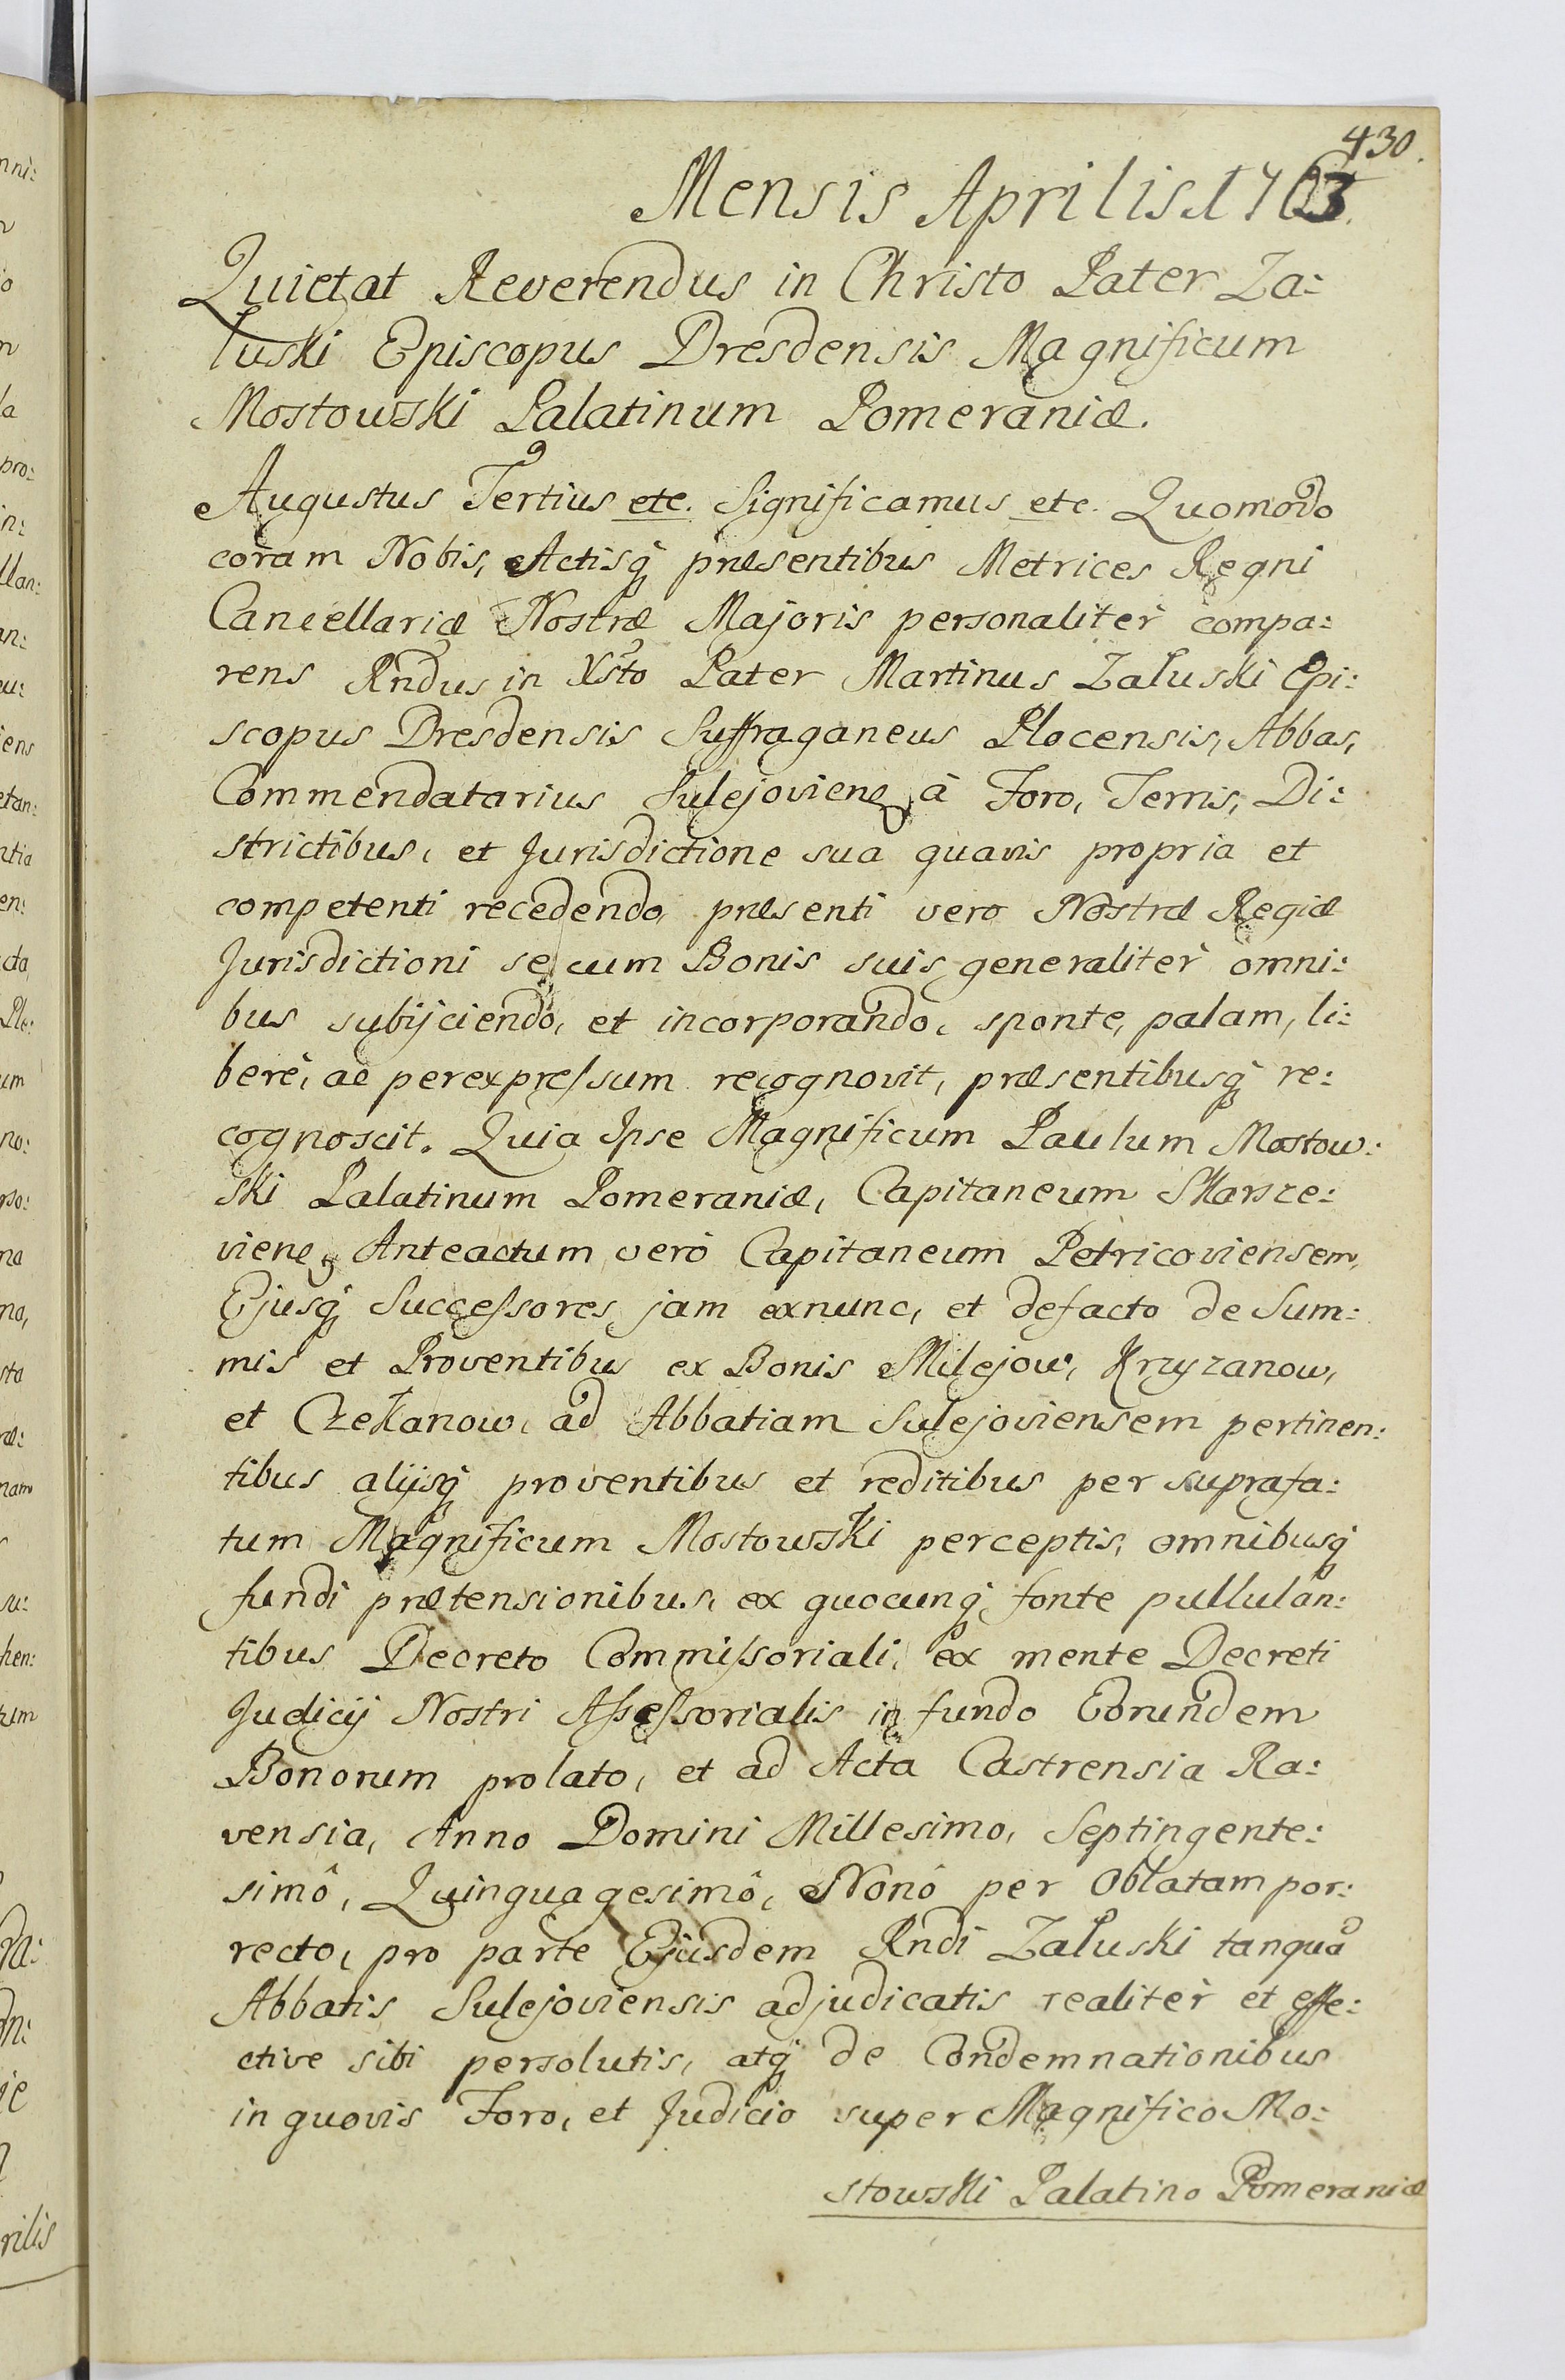 430.
Mensis Aprilis 1763.
Quietat Reverendus in Christo Pater Za:
łuski Episcopus Dresdensis Magnificum
Mostowski Palatinum Pomeraniæ.
Augustus Tertius etc. Significamus etc. Quomodo
coram Nobis, Actisq́ præsentibus Metrices Regni
Cancellariæ Nostræ Majoris personaliter compa:
rens Rndus in Xsto Pater Martinus Załuski Epi:
scopus Dresdensis Suffraganeus Plocensis, Abbas,
Commendatarius Sulejovien̄ à Foro, Terris, Di:
strictibus, et Jurisdictione sua quavis propria et
competenti recedendo, præsenti vero Nostræ Regiæ
Jurisdictioni se cum Bonis suis generaliter omni:
bus subijciendo, et incorporando, sponte, palam, li:
berè, ac per expressum recognovit, præsentibusq́ re:
cognoscit. Quia Ipse Magnificum Paulum Mostow:
ski Palatinum Pomeraniæ, Capitaneum Skarsze:
vien̄, Anteactum verò Capitaneum Petricoviensem,
Ejusq́ Successores jam exnunc, et defacto de Sum:
mis et Proventibus ex Bonis Milejow, Krzyzanow,
et Czekanow, ad Abbatiam Sulejoviensem pertinen:
tibus alijsq́ proventibus et reditibus per suprafa:
tum Magnificum Mostowski perceptis, omnibusq́
fundi prætensionibus, ex quocunq́ fonte pullulan:
tibus Decreto Commissoriali, ex mente Decreti
Judicij Nostri Assessorialis in fundo Eorundem
Bonorum prolato, et ad Acta Castrensia Ra:
vensia, Anno Domini Millesimo, Septingente:
simô, Quinquagesimô, Nonô per Oblatam por:
recto, pro parte Ejusdem Rndi Załuski tanquã
Abbatis Sulejoviensis adjudicatis realiter et effe:
ctive sibi persolutis, atq́ de Condemnationibus
in quovis Foro, et Judicio super Magnifico Mo:
stowski Palatino Pomeraniæ